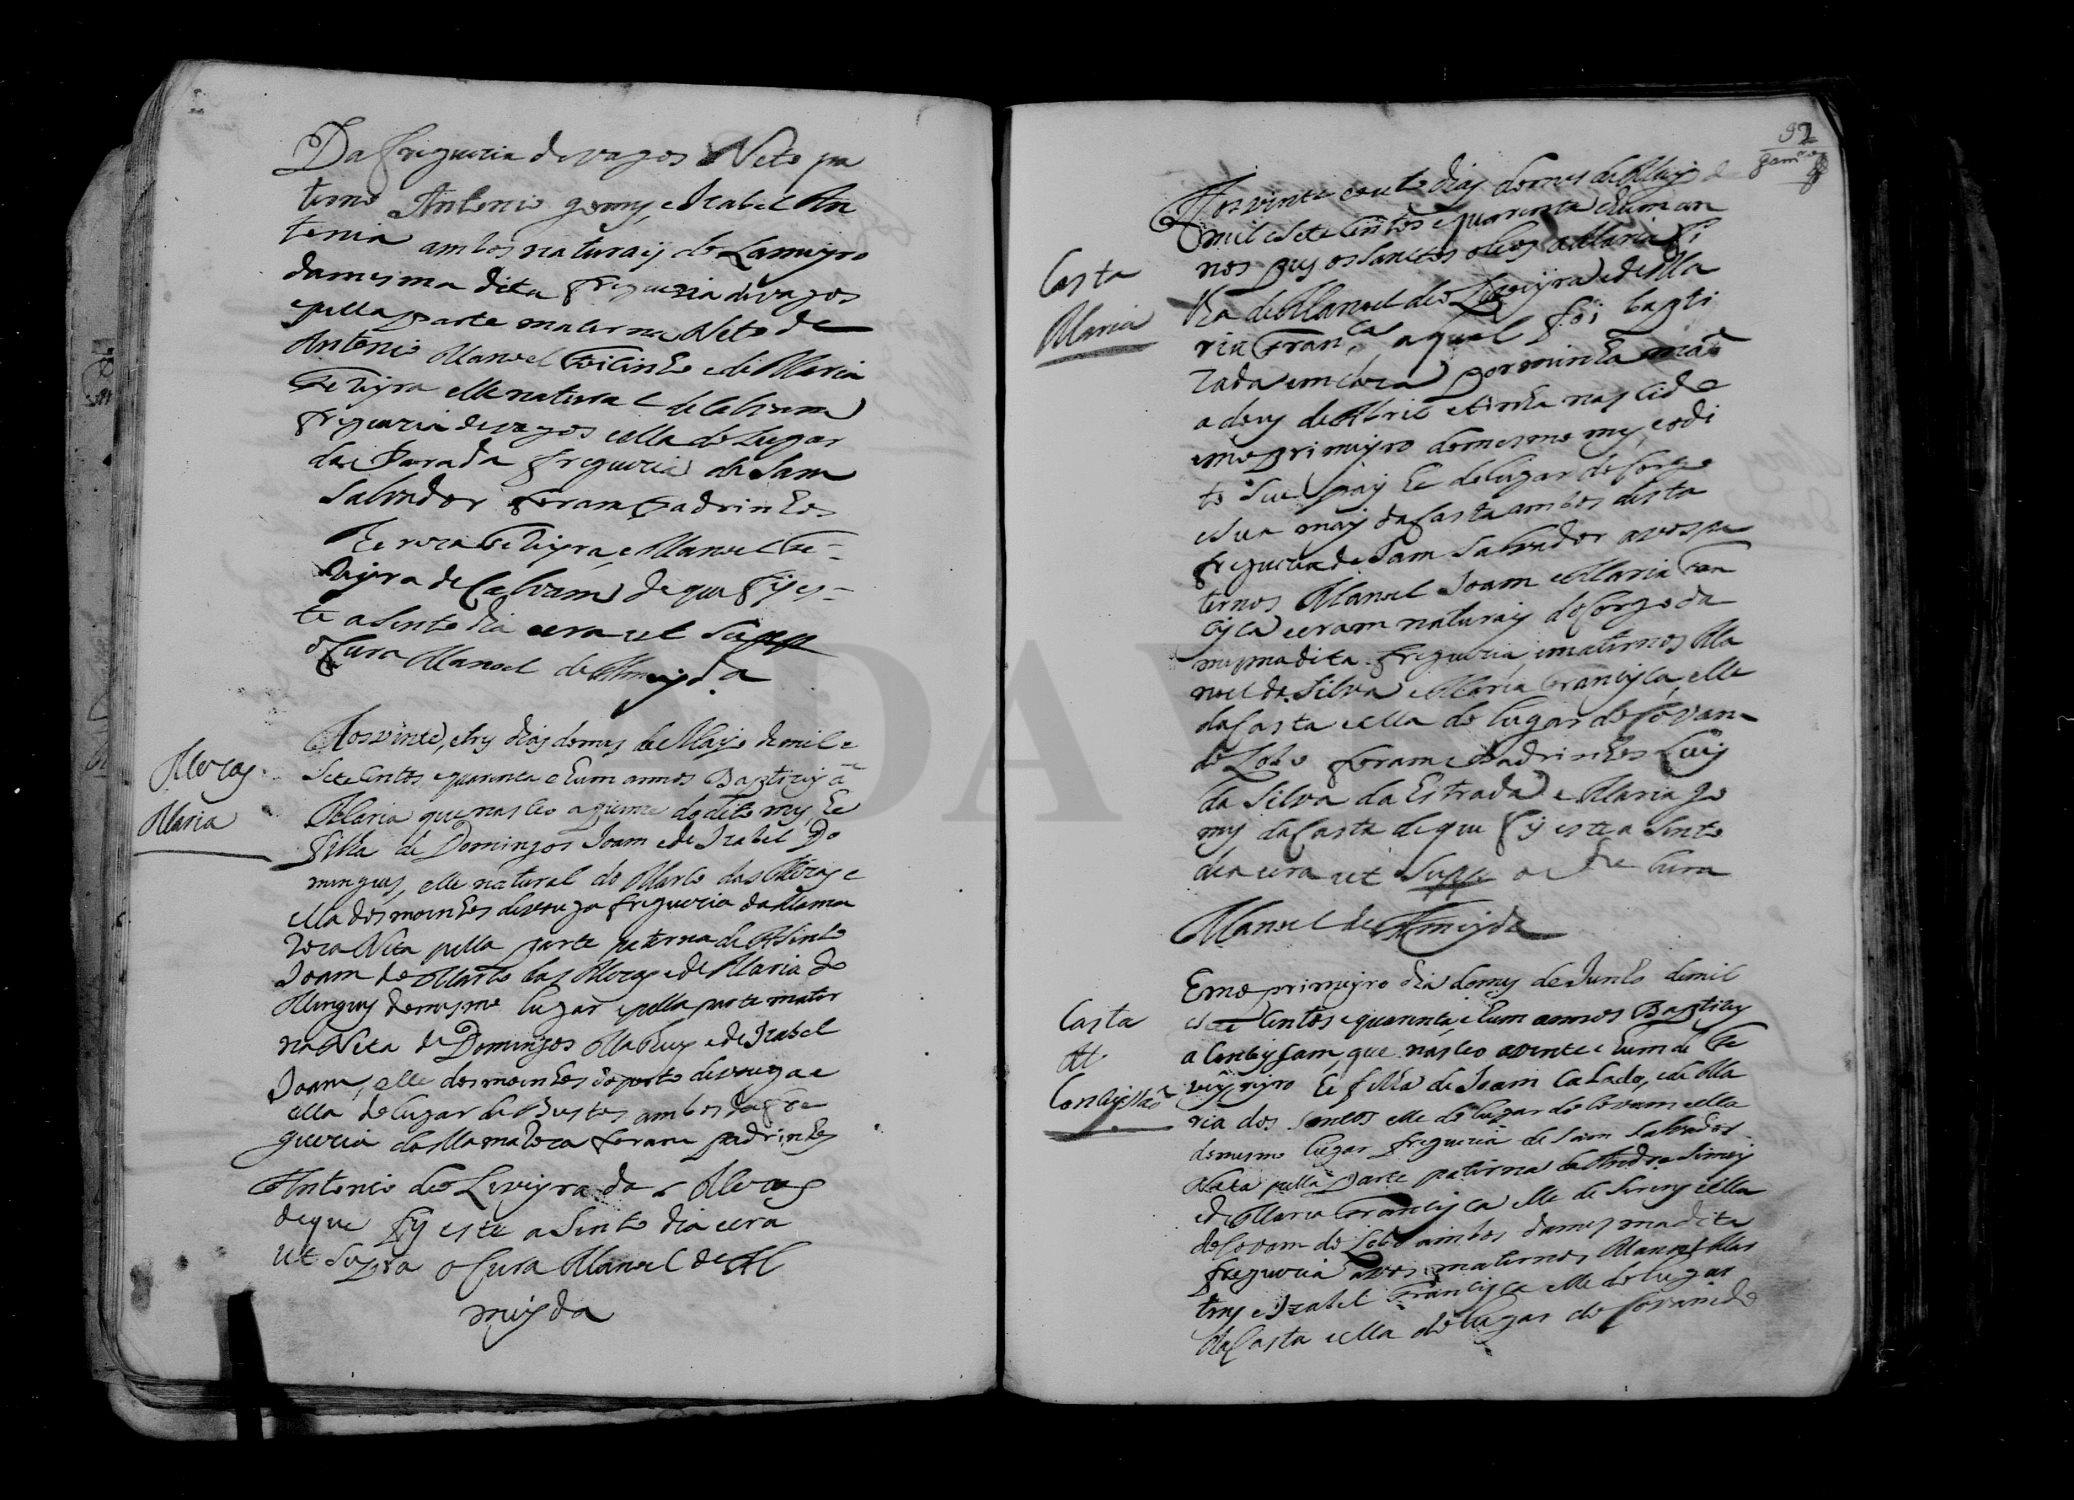 Da freguezia de vagos Neto pa
terno Antonio gomes, e Izabel An
tonia ambos naturaes do Lameyro
da mesma dita freguezia de vagos
e pella parte materna Neto de
Antonio Manoel e de Maria
elle natural de Calvam
freguezia de vagos e ella do Lugar
da Parada freguezia de Sam
Salvador foram Padrinhos
e Manoel
de Calvam de que fis es-
te asento dia era ut Supra
o Cura Manoel de Almeyda
Mezas
Maria
Aos vinte, e tres dias do mes de Mayo de mil e
Sete Centos e quarenta e hum annos Baptizey a
Maria que nasceo a quinze do dito mes he
filha de Domingos Joam e de Izabel Do
mingues, elle natural do Marco das Mezas e
ella dos moinhos de vouga freguezia da Mama
Roza Neta pella parte paterna de Asinto
Joam do Marco das Mezas e de Maria Do
Mingues do mesmo lugar e pella parte mater
na Neta de Domingos e de Izabel
Joam, elle dos moinhos do porto de vouga e
ella do lugar de Bustos ambos da fre
guezia da Mama Roza foram padrinhos
Antonio de Oliveyra da Mezas
de que fis este asento dia e era
ut Supra o Cura Manoel de Al
meyda
92
Costa
Maria
Aos vinte e outo dias do mes de Mayo de
mil e Sete Centos e quarenta e hum an
nos pus os Santos oleos a Maria fi
lha de Manoel de Oliveyra e de Ma
ria Fran.ca a qual foi bapti
zada em caza por minha mão
a des de Abril e tinha nascido
em o primeyro do mesmo mes, e o di
to Seu pay he do lugar de Sorge
e Sua may da Costa ambos desta
freguezia de Sam Salvador avos pa
ternos Manoel Joam e Maria Fran
cisca e eram naturaes de Sorgo da
mesma dita freguezia, e maternos Ma
noel da Silva e Maria Francisca, elle
da Costa e ella do lugar do Covam
do Lobo foram Padrinhos Luis
da Silva da Estrada e Maria go
mes da Costa de que fis este asento
dia era ut Supra o Cura
Manoel de Almeyda
Costa
Conceissão
Em o primeyro dia do mes de Junho de mil
e Sete Centos e quarenta e hum annos Baptizey
a Conceysam, que nasceo a vinte e hum de
he filha de Joam Calado, e de Ma
ria dos Santos elle do lugar do Covam e ella
do mesmo lugar freguezia de Sam Salvador
Neta pella Parte paterna de Andre Simoes
e de Maria Francisca elle de e ella
do Covam do Lobo ambos da mesma dita
freguezia avos maternos Manoel Mar
tins e Izabel Francisca elle do lugar
da Costa e ella do lugar do Covam do